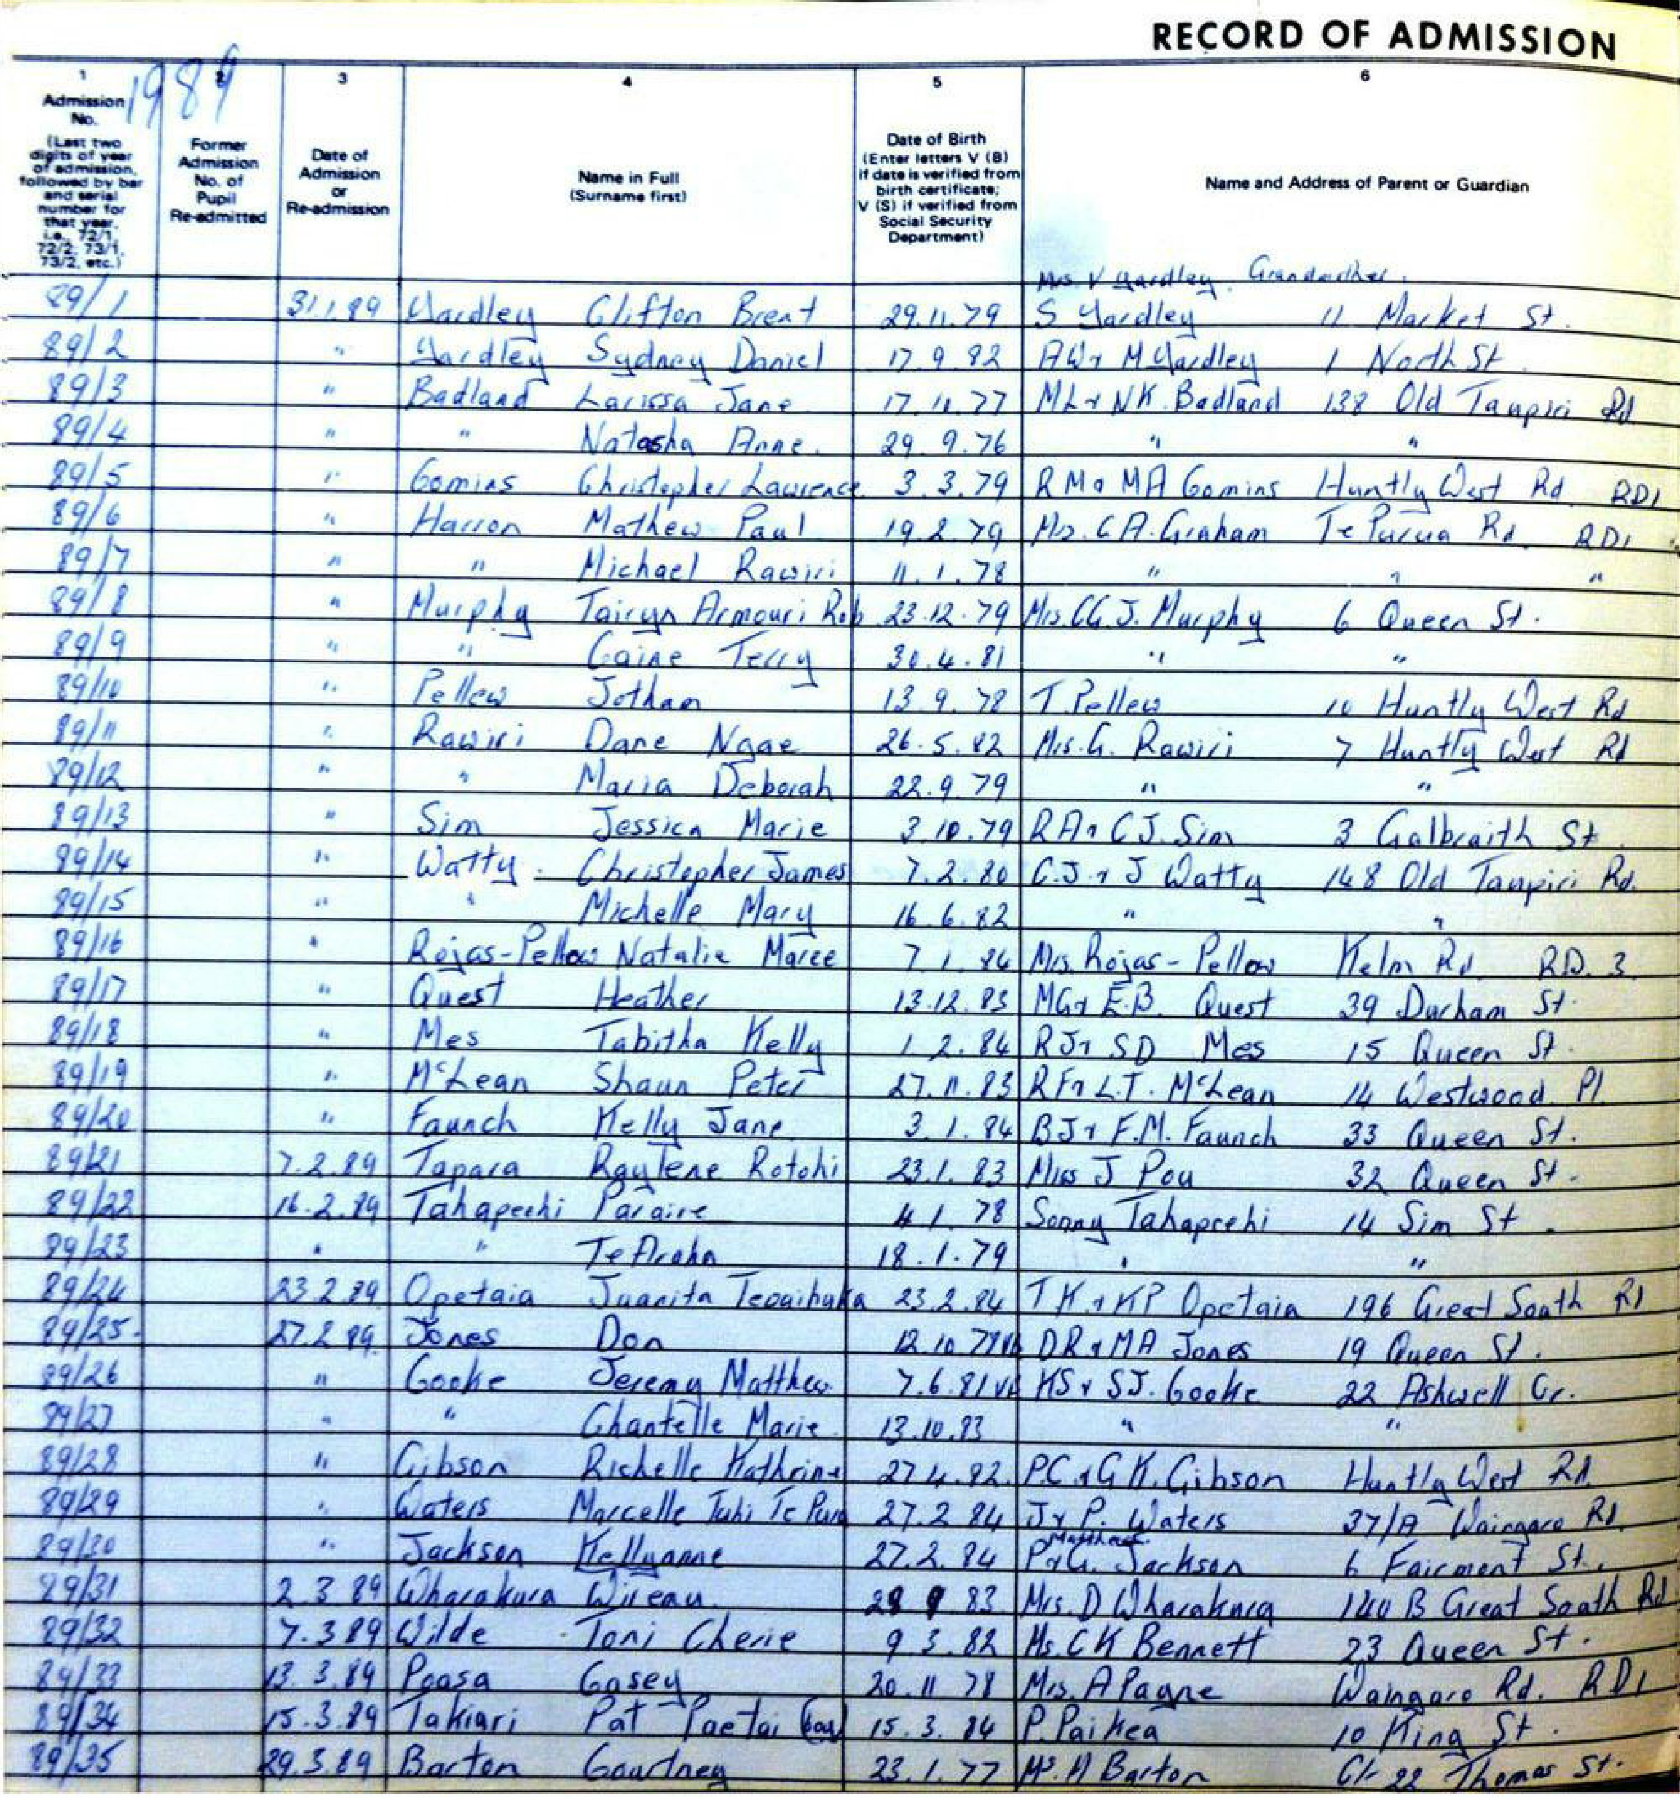 RECORD OF ADMISSION
1989
1 2 3 4 5 6
Admission No. (Last two digits of year of admission, followed by bar and serial number for that year, i.e. 72/1, 72/2, 73/1, 73/2, etc.) Former Admission No. of Pupil Re-admitted Date of Admission or Re-admission Name in Full (Surname first) Date of Birth (Enter letters V (B) if date is verified from birth certificate; V (S) if verified from Social Security Department) Name and Address of Parent or Guardian
Mrs. V Yardley. Grandmother.
89/1 31.1.89 Yardley Clifton Brent 29.11.79 S Yardley 11 Market St.
89/2 " Yardley Sydney Daniel 17.9.82 AW & M Yardley 1 North St
89/3 " Badland Larissa Jane 17.11.77 ML & NK Badland 138 Old Taupiri Rd
89/4 " " Natasha Anne. 29.9.76 " "
89/5 " Comins Christopher Lawrence 3.3.79 RM & MA Comins Huntly West Rd. RD1
89/6 " Harron Mathew Paul 19.2.79 Mrs. C A. Graham Te Purua Rd. RD1
89/7 " " Michael Rawiri 11.1.78 " " "
89/8 " Murphy Tairyn Armouri Rob 23.12.79 Mrs. CG. J. Murphy 6 Queen St.
89/9 " " Caine Terry 30.4.81 " "
89/10 " Pellew Jotham 13.9.78 T. Pellew 10 Huntly West Rd
89/11 " Rawiri Dane Ngae 26.5.82 Mrs. G. Rawiri 7 Huntly West Rd
89/12 " " Maria Deborah 22.9.79 " "
89/13 " Sim Jessica Marie 3.10.79 RA & CJ. Sim 3 Galbraith St.
89/14 " Watty. Christopher James 7.2.80 C.J. & J Watty 148 Old Taupiri Rd.
89/15 " " Michelle Mary 16.6.82 " "
89/16 " Rojas-Pellow Natalie Maree 7.1.84 Mrs. Rojas-Pellow Kelm Rd. RD. 3
89/17 " Quest Heather 13.12.83 MG & E.B. Quest 39 Durham St.
89/18 " Mes Tabitha Kelly 1.2.84 RJ & SD Mes 15 Queen St.
89/19 " McLean Shaun Peter 27.11.83 RF & L.T. McLean 14 Westwood Pl.
89/20 " Faunch Kelly Jane 3.1.84 BJ & F.M. Faunch 33 Queen St.
89/21 7.2.89 Tapara Raylene Rotohi 23.1.83 Miss J Pou 32 Queen St.
89/22 16.2.89 Tahapeehi Paraire 4.1.78 Sonny Tahapeehi 14 Sim St.
89/23 " " Te Aroha 18.1.79 " "
89/24 23.2.89 Opetaia Juanita 23.2.84 TK. & KP Opetaia 196 Great South Rd
89/25 27.2.89 Jones Don 12.10.78 VB DR & MA Jones 19 Queen St.
89/26 " Cooke Jeremy Matthew 7.6.81 VB KS & SJ. Cooke 22 Ashwell Cr.
89/27 " " Chantelle Marie 13.10.83 " "
89/28 " Gibson Richelle Kathrine 27.4.82. P.C. & G K. Gibson Huntly West Rd
89/29 " Waters Marcelle Tuhi Te Pura 27.2.84 J & P. Waters 37/A Waingaro Rd.
89/30 " Jackson Kellyanne 27.2.84 P & G. Jackson 6 Fairmont St.
89/31 2.3.89 Wharakura Wireau 83 Mrs. D Wharakura 140 B Great South Rd
89/32 7.3.89 Wilde Toni Cherie 9.3.82 Ms. C K Bennett 23 Queen St.
89/33 13.3.89 Poasa Casey 20.11.78 Mrs. A Payne Waingaro Rd. RD1
89/34 15.3.89 Takiari Pat Paetai (boy) 15.3.84 P. Paikea 10 King St.
89/35 29.3.89 Barton Courtney 23.1.77 Barton C/- 22 Thomas St.